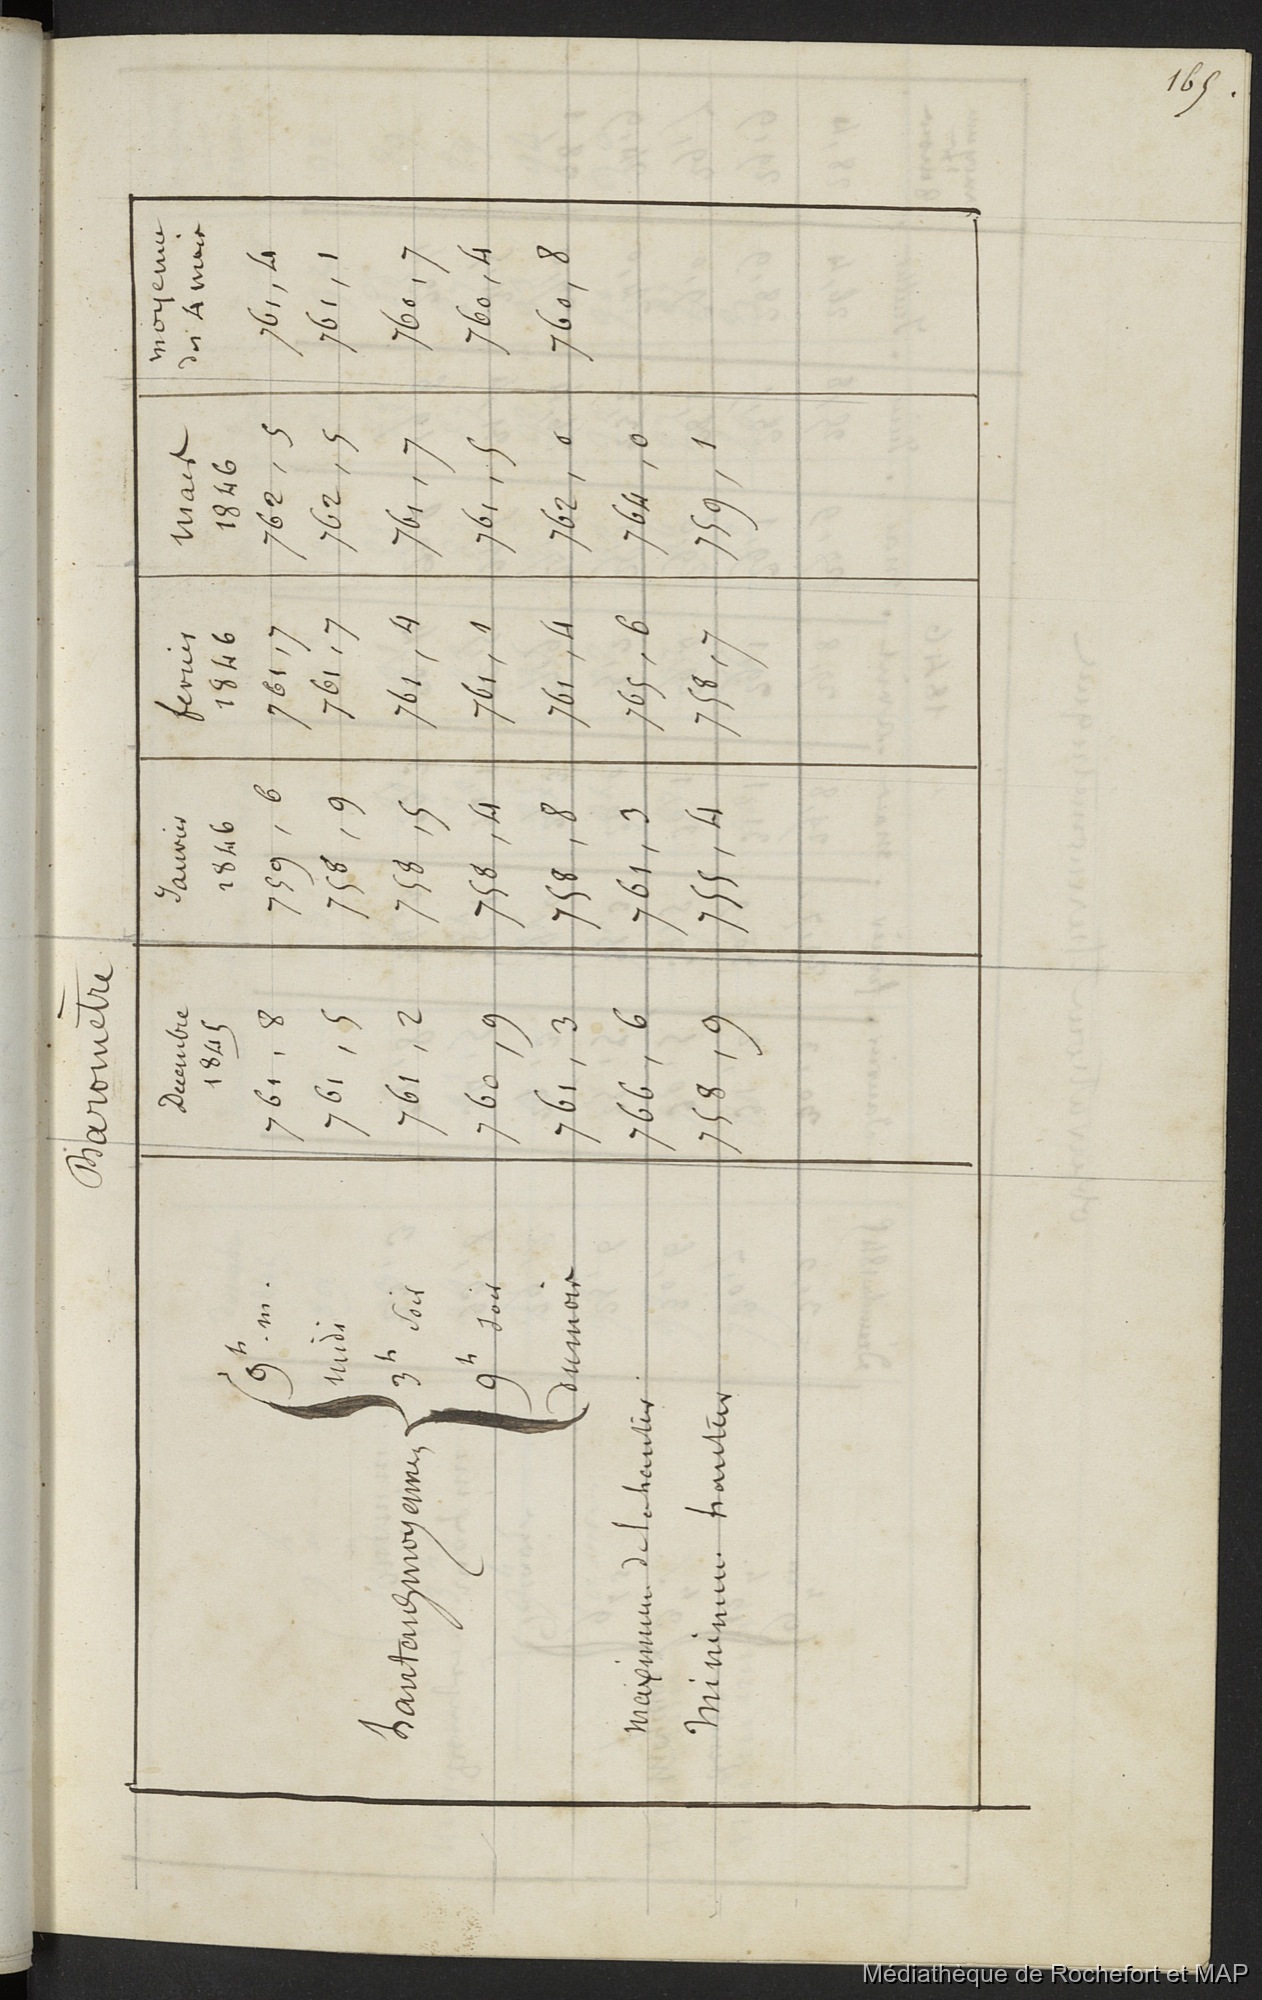 165.
Baromètre
Decembre 1845 Janvier 1846 fevrier 1846 mars 1846 moyenne des 4 mois
9h. m. 761,8 759,6 761,7 762,5 761,4
midi 761,5 758,9 761,7 762,5 761,1
hauteurs moyennes 3h soir 761,2 758,5 761,4 761,7 760,7
9h soir 760,9 758,4 761,1 761,5 760,4
du mois 761,3 758,8 761,4 762,0 760,8
maximum de la hauteur 766,6 761,3 765,6 764,0
Minimum hauteur 758,9 755,4 758,7 759,1
Médiathèque de Rochefort et MAP